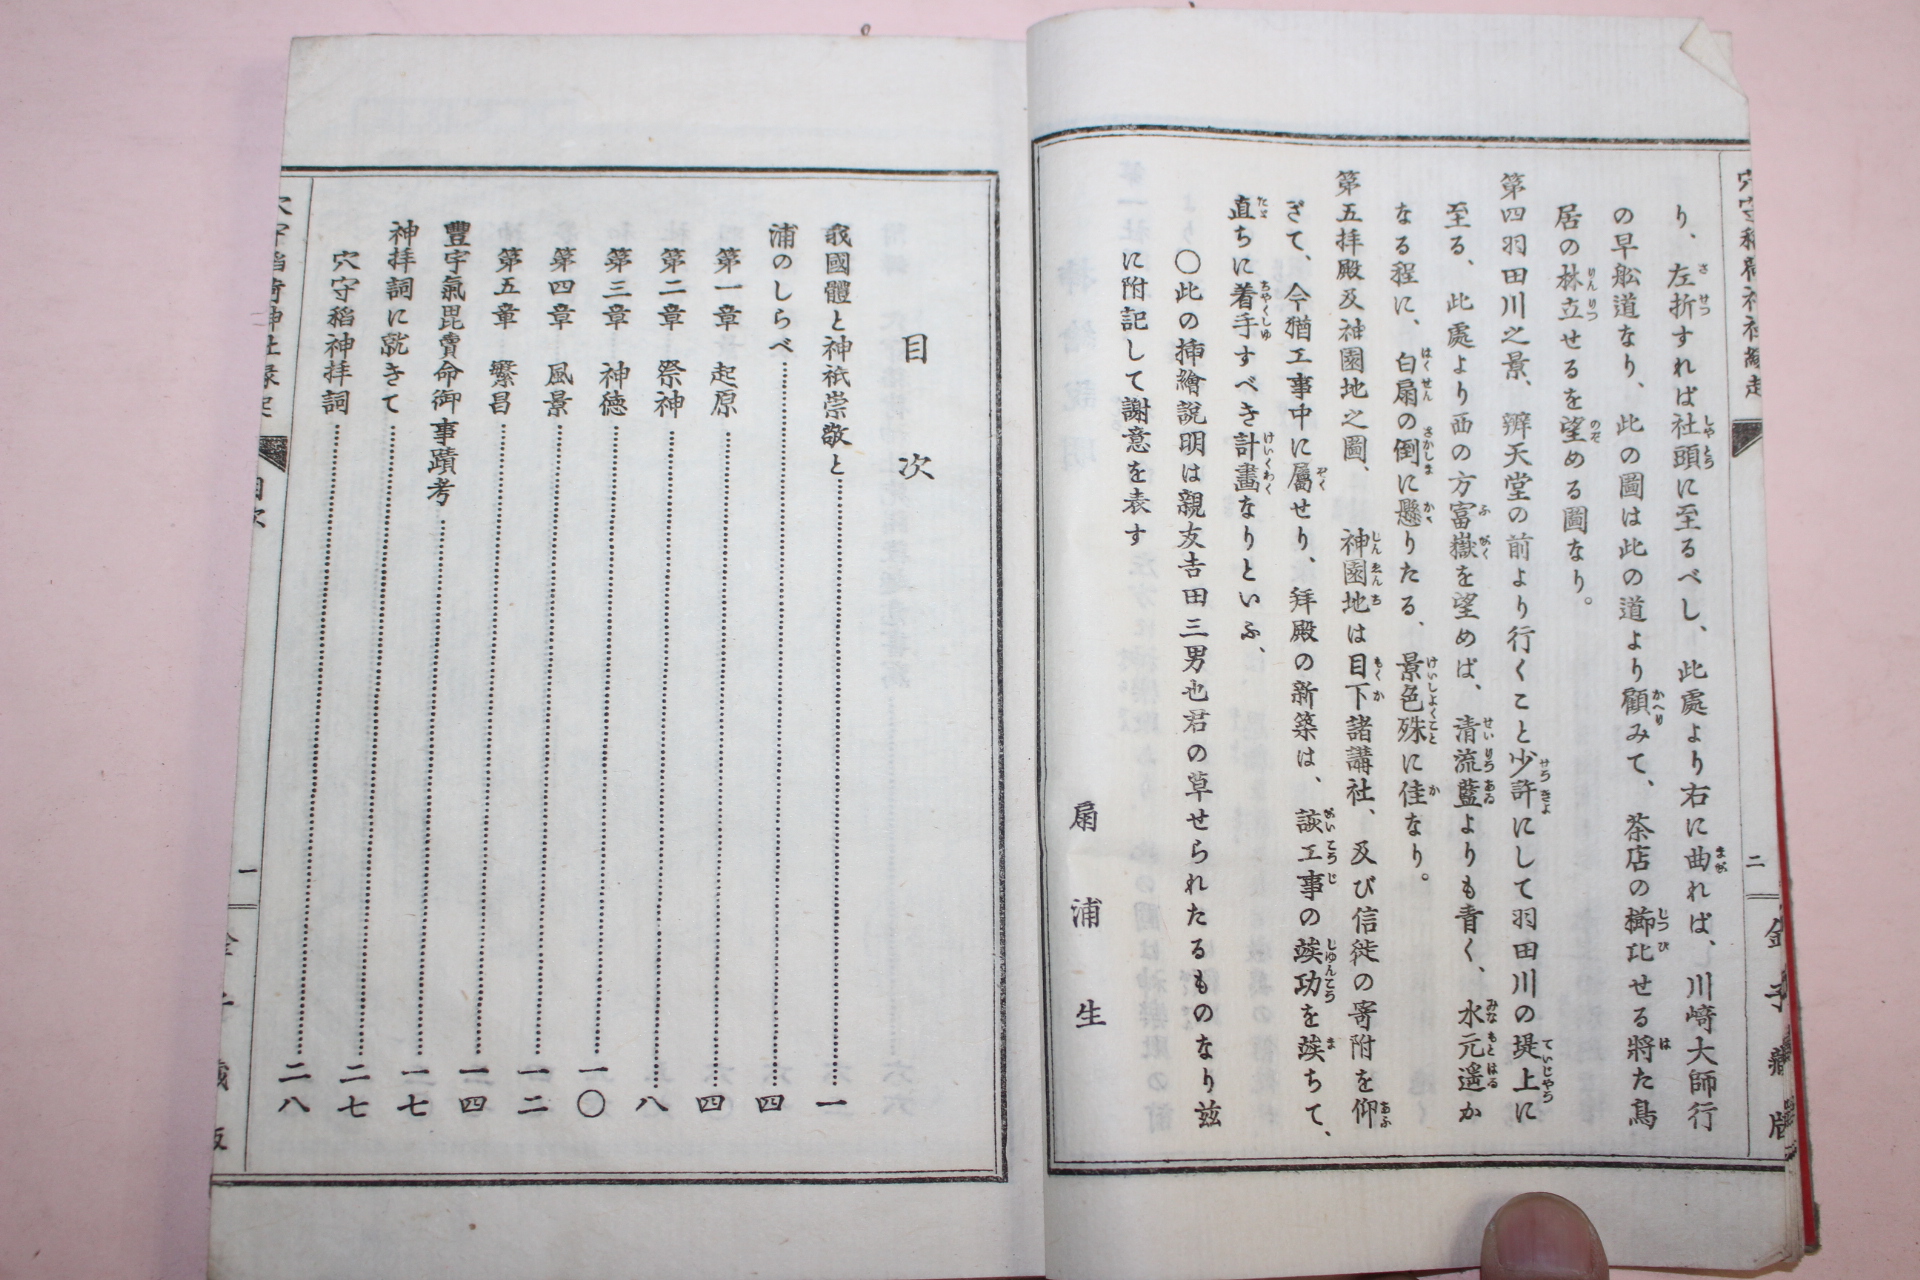 穴守稲荷神社縁起
二
金子藏版
り、左折すれば社頭に至るべし、此處より右に曲れば、川崎大師行
の早舩道なり、此の圖は此の道より顧みて、茶店の櫛比せる將た鳥
居の林立せるを望める圖なり。
第四羽田川之景、辨天堂の前より行くこと少許にして羽田川の堤上に
至る、此處より西の方富嶽を望めば、清流藍よりも青く、水元遥か
なる程に、白扇の倒に懸りたる、景色殊に佳なり。
第五拝殿及神園地之圖、神園地は目下諸講社、及び信徒の寄附を仰
ぎて、今猶工事中に屬せり、拜殿の新築は、該工事の竣功を竣ちて、
直ちに着手すべき計畫なりといふ、
〇此の挿繪說明は親友吉田三男也君の草せられたるものなり玆
に附記して謝意を表す
扇浦生
目次
我國體と神祇崇敬と……一
浦のしらべ……四
第一章 起原……四
第二章 祭神……八
第三章 神徳……一〇
第四章 風景……一二
第五章 繁昌……一四
豐宇氣毘賣命御事蹟考……一七
神拝詞に就きて……二七
穴守稻神拝詞……二八
目次
一